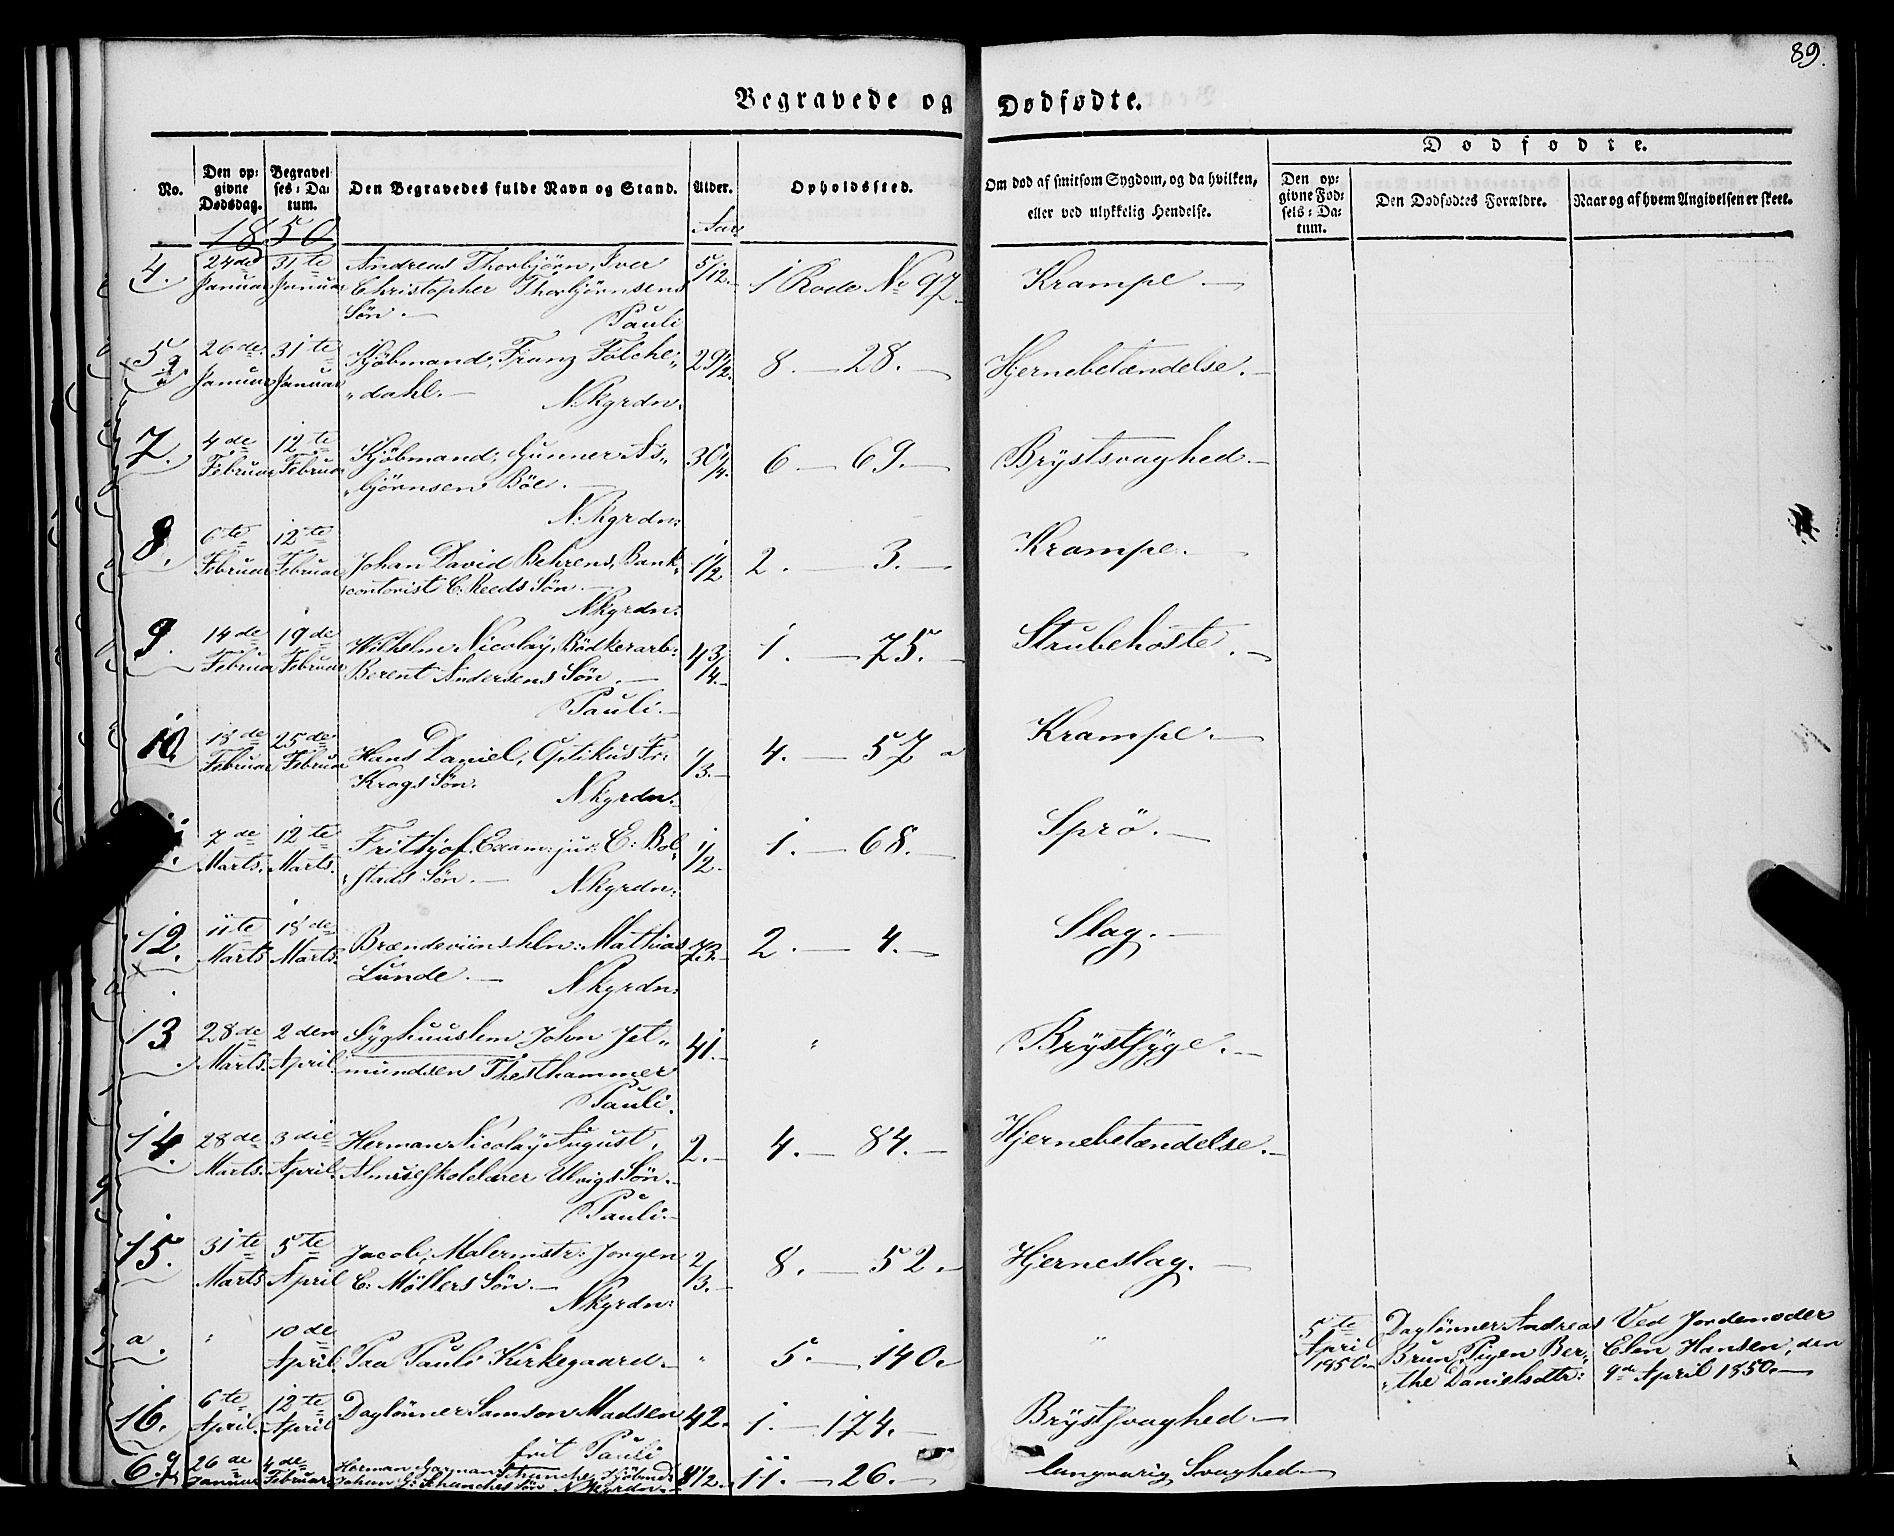 89.
Begravede og Dødfødte.
No.
Den opgivne Dødsdag.
Begravelses-Datum.
Den Begravedes fulde Navn og Stand.
Alder.
Opholdssted.
Om død af smitsom Sygdom, og da hvilken, eller ved ulykkelig Hendelse.
Dødfødte.
Den opgivne Fødsels-Datum.
Den Dødfødtes Forældre.
Naar og af hvem Angivelsen er skeet.
1850
Aar.
4. 24de 31te Andreas Thorbjørn, Iver 5/12. 1 Rode No 97. Krampe.
Januar Januar Christopher Thorbjørnsens
Søn. Pauli
5 26de 31te Kjøbmand, Franz Folche- 29 1/2. 8. 28. Hjernebetændelse.
Januar Januar dahl. N: kgrdn:
7. 4de 12te Kjøbmand: Gunner As- 30 1/4. 6 69. Brÿstsvaghed.
Februar Februar bjørnsen Böe.
N: kgrdn:
8. 6te 12te Johan David Behrens, Bank- 1 1/2 2. 3. Krampe.
Februar Februar contorist C. Reeds Søn.
Nkgrdn:
9. 14de 19de Wilhelm Nicolaÿ, Bödkerarb: 4 3/4. 1. 75. Strubehoste.
Februar Februar Berent Andersens Søn.
Pauli.
10. 18de 25de Hans Daniel, Optikus Fr: 1/3. 4. 57 a Krampe.
Februar Februar Krogs Søn. Nkgrdn.
7de 12te Frithjof, Exam: jur: E: Bol- 1/2. 1. 68. Sprö.
Marts. Marts. stads Søn. Nkgrdn:
12. 11te 18de Brændeviinshdn: Mathias 73. 2. 4. Slag.
Marts Marts Lunde. Nkgrdn:
13 28de 2den Sÿghuuslem John Jet- 41. " Brÿstsÿge.
Marts. April mundsen Thesthammer
Pauli.
14. 28de 3die Herman Nicolaÿ August, 2. 4. 84. Hjernebetændelse.
Marts. April. Almueskolelærer Ulvigs Søn.
Pauli.
15. 31te 5te Jacob, Malermstr: Jørgen 2/3. 8. 52. Hjerneslag.
Marts April C: Møllers Søn.
Nkgrdn:
a. " 10de April. Paa Pauli Kirkegaard. " 5. 140. " 5te April 1850. Daglönner Andreas Brun, Pigen Ber- the Danielsdtr: Ved Jordemoder Elen Hansen, den 9de April 1850.
16. 6te 12te Daglönner Samson Madsen 42. 1. 174. Brÿstsvaghed.
April. April frit Pauli
6. 26de 4de Herman 8 1/2. 11. 26. langvarig Svaghed
Januar Februar Johan Søn Nkgrdn.